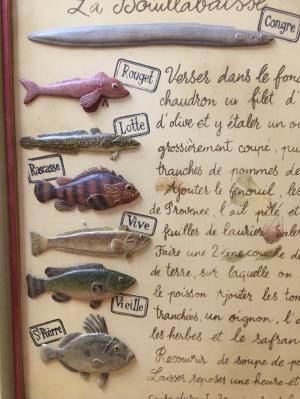 La Bouillabaisse
Congre
Rouget
Lotte
Rascasse
Vive
Vieille
St Pierre
Verser dans le fond
chaudron un filet d'
d'olive et y étaler un
grossièrement coupé, puis
tranches de pommes de
Ajouter le fenouil, les
de Provence, l'ail pilé et
feuilles de laurier
Faire une 2ème couche de
de terre, sur laquelle on
le poisson Ajouter les tom
tranchées, un oignon, l'
les herbes et le safran
Recouvrir de soupe de po
Laisser reposer une heure et